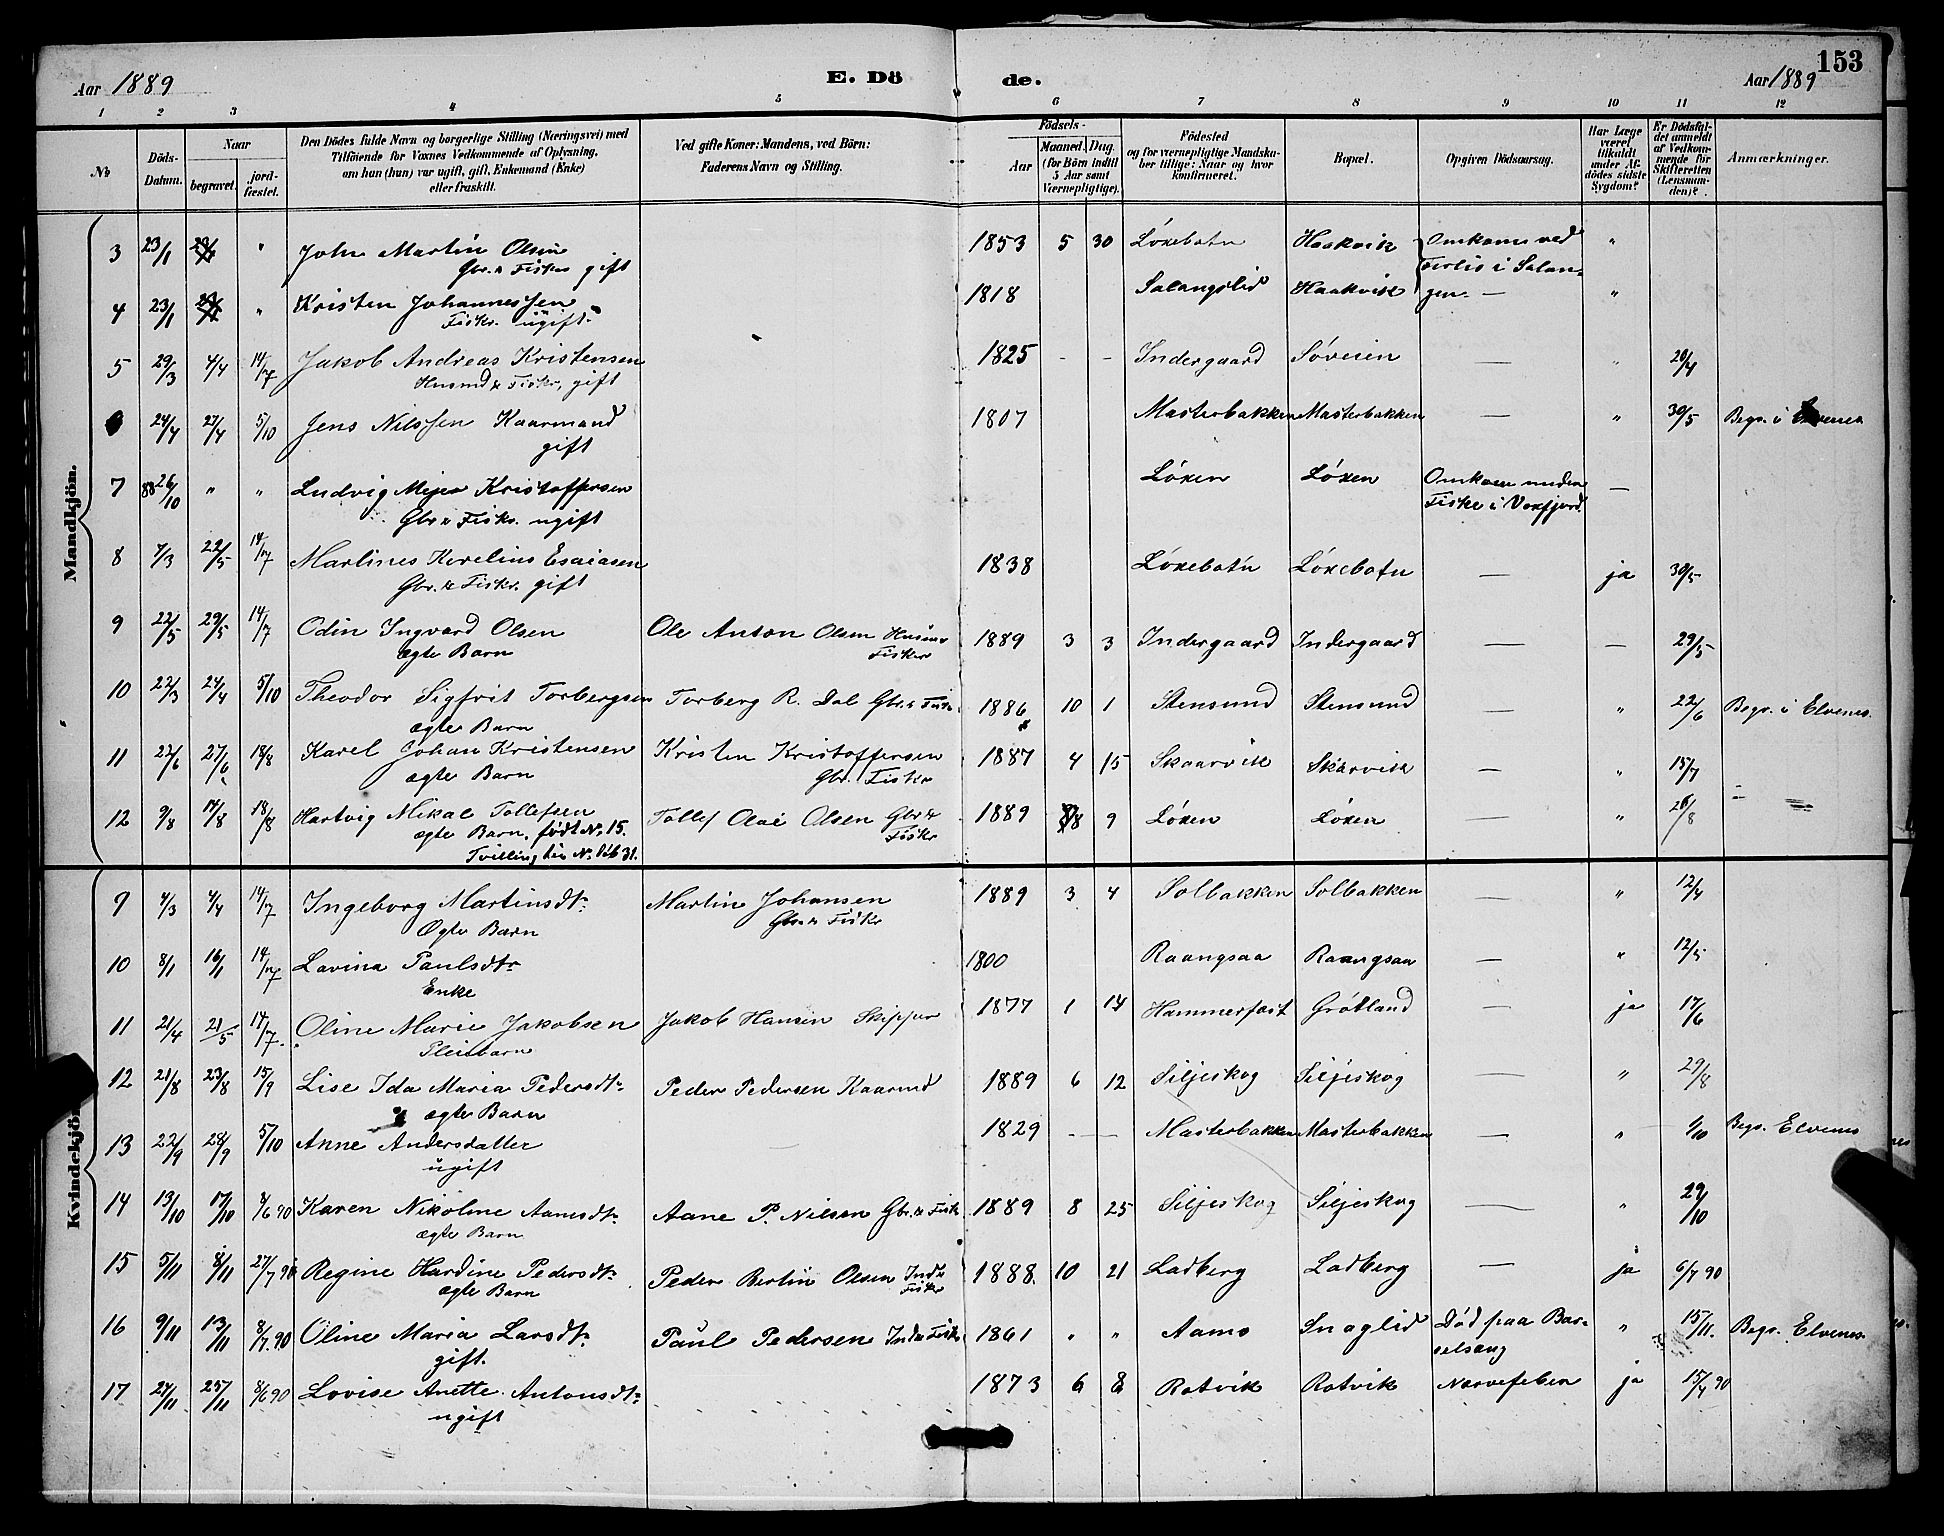 153
Aar 1889 E. Dö de. Aar 1889
1 2 3 4 5 6 7 8 9 10 11 12
№
Döds-Datum.
Naar
begravet. jordfæstet.
Den Dödes fulde Navn og borgerlige Stilling (Næringsvei) med
Tilföiende for Voxnes Vedkommende af Oplysning,
om hun (han) var ugift, gift, Enkemand (Enke)
eller fraskilt.
Ved gifte Koner: Mandens, ved Börn:
Faderens Navn og Stilling.
Födsels-
Aar Maaned. Dag.
(for Börn indtil
5 Aar samt
Værnepligtige).
Födested
og for værnepligtige Mandskaber tillige: Naar og hvor
konfirmeret.
Bopæl.
Opgiven Dödsaarsag.
Har Læge
været
tilkaldt
under Afdödes sidste
Sygdom?
Er Dödsfaldet anmeldt
af Vedkommende for
Skifteretten
(Lensmanden)?
Anmærkninger.
Mandkjön.
3 23/1 " John Martin Olsen 1853 5 30 Löxebotn Haakvik Omkom ved
Gbr. & Fisker gift Forlis i Salan-
4 23/1 " Kristen Johannessen 1818 Salangslid Haakvik gen. — "
Fiskr. ugift.
5 29/3 4/4 14/7 Jakob Andreas Kristensen 1825 - - Indergaard Søveien — " 20/4
Husmd & Fiskr, gift
24/4 27/4 5/10 Jens Nilssen Kaarmand 1807 Masterbakken Masterbakken — " 30/5 Begr. i Elvenes
gift
7 88 26/10 " " Ludvig Mejer Kristoffersen Löxen Löxen Omkom under —
Gbr & Fiskr. ugift Fiske i Voxfjord.
8 7/3 22/5 14/7 Martines Korelius Esaiasen 1838 Löxebotn Löxebotn — ja 30/5
Gbr. & Fiskr. gift
9 22/5 29/5 14/7 Odin Ingvard Olsen Ole Anton Olsen Husm & 1889 3 3 Indergaard Indergaard — — 29/5
ægte Barn Fisker
10 22/3 24/4 5/10 Theodor Sigfrit Torbergsen Torberg R. Dal Gbr. & Fiskr 1886 10 1 Stensund Stensund — " 22/6 Begr. i Elvenes.
ægte Barn
11 22/6 27/6 18/8 Karel Johan Kristensen Kristen Kristoffersen 1887 4 15 Skaarvik Skarvik — " 15/7
ægte Barn Gbr. Fiskr
12 9/8 14/8 18/8 Hartvig Mikal Tollefsen Tollef Olai Olsen Gbr & 1889 8 9 Löxen Löxen " 26/8
ægte Barn, født N. 15. Fiskr
Tvilling
Kvindekjön
9 4/3 4/4 14/7 Ingeborg Martinsdtr Martin Johansen 1889 3 4 Solbakken Solbakken — " 12/4
Ægte Barn Gbr. & Fiskr
10 8/1 16/1 14/7 Lavina Paulsdtr 1800 Raangsaa Raangsaa — " 12/5
Enke
11 21/4 21/5 14/7 Oline Marie Jakobsen Jakob Hansen Skipper 1877 1 14 Hammerfest Grötland — ja 17/6
Pleiebarn
12 21/8 23/8 15/9 Lise Ida Maria Pedersdtr Peder Pedersen Kaarmd 1889 6 12 Siljeskog Siljeskog — " 29/8
ægte Barn
13 22/9 28/9 5/10 Anne Andersdatter — 1829 - - Masterbakken Masterbakken — " 1/10 Begr. Elvenes
ugift
14 13/10 17/10 8/6 90 Karen Nikoline Aanesdtr Aane P. Nilsen Gbr. & Fiskr 1889 8 25 Siljeskog Siljeskog — " 29/10
ægte Barn
15 5/11 8/11 27/7 90 Regine Hardine Pedersdtr Peder Bertin Olsen Inds & 1888 10 21 Ladberg Ladberg — ja 6/7 90
ægte Barn Fiskr
16 9/11 13/11 8/7 90 Oline Maria Larsdtr Paul Pedersen Inds & Fiskr 1861 " " Aamo Snaglid Død paa Bar- " 15/11. Begr. Elvenes
gift. selsæng
17 24/11 25/11 8/6 90 Lovise Anette Antonsdtr 1873 6 8 Rotvik Rotvik Nervefeber ja 15/4 90
ugift